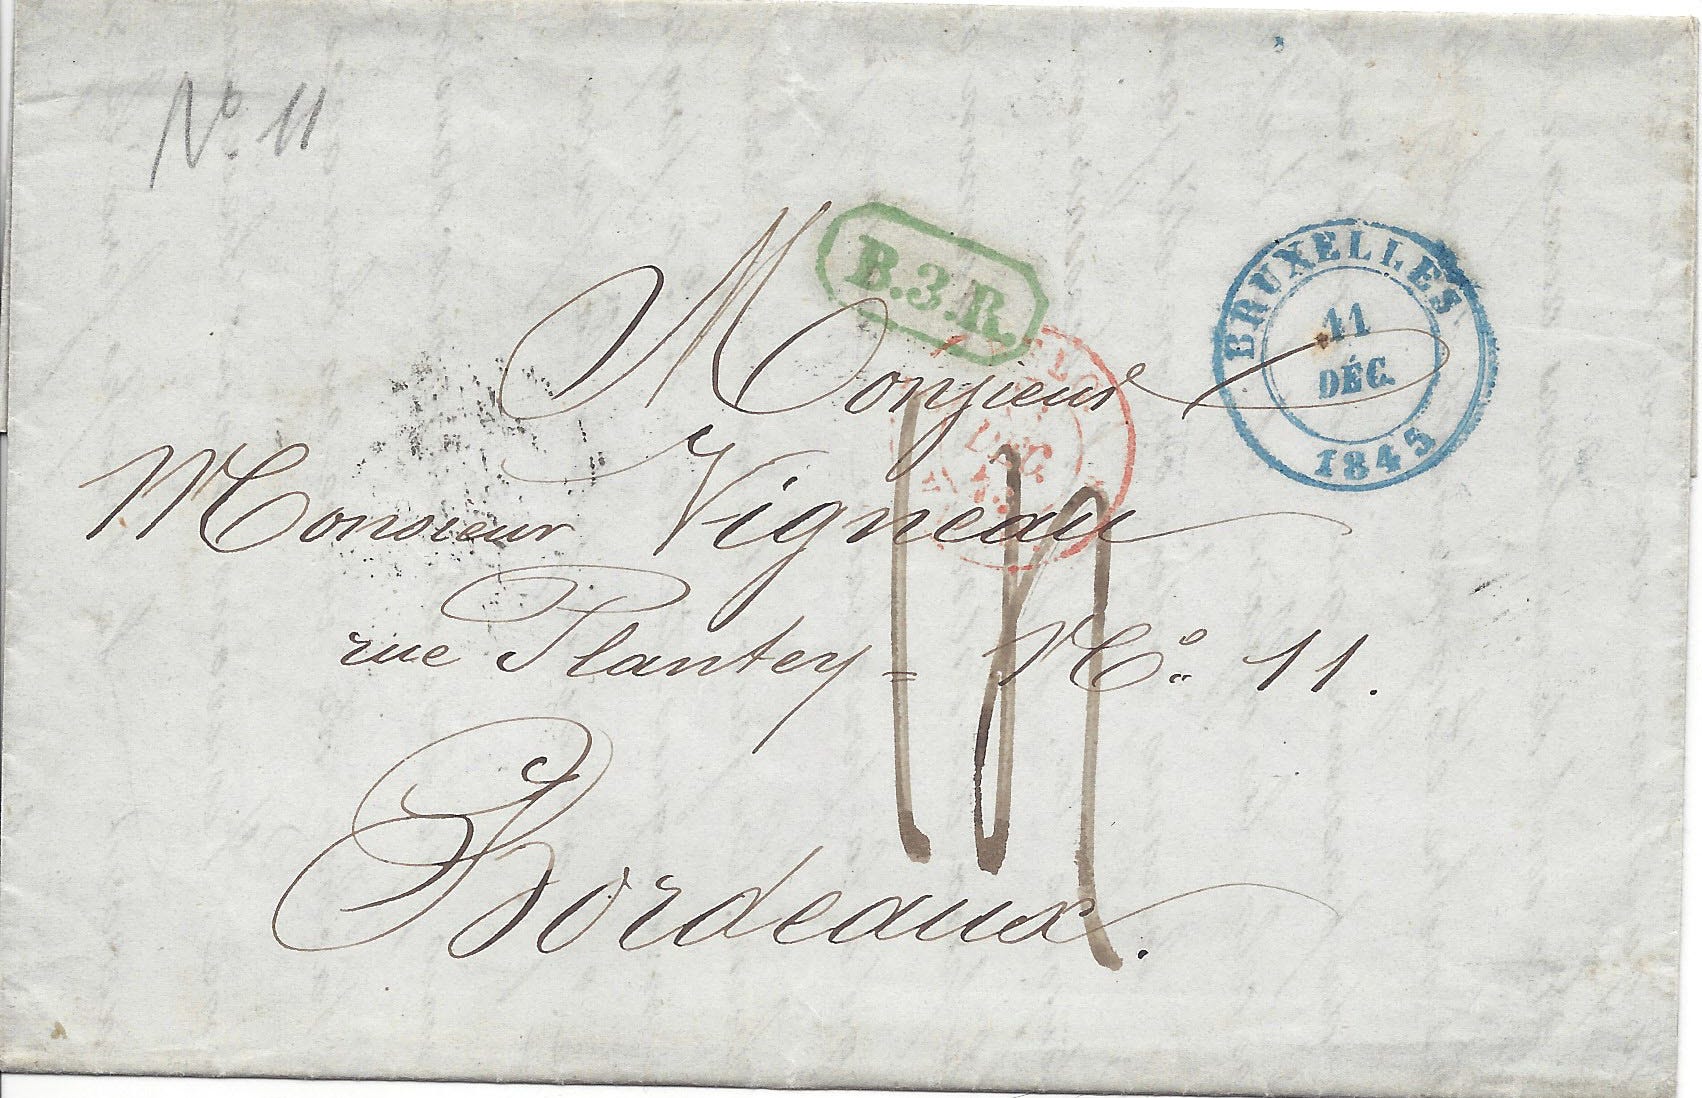 N.º 11
B.3.R.
BRUXELLES
11
DÉC.
1845
Monsieur
DEC
Monsieur Vigneau
rue Plantey = Nº. 11.
Bordeaux.